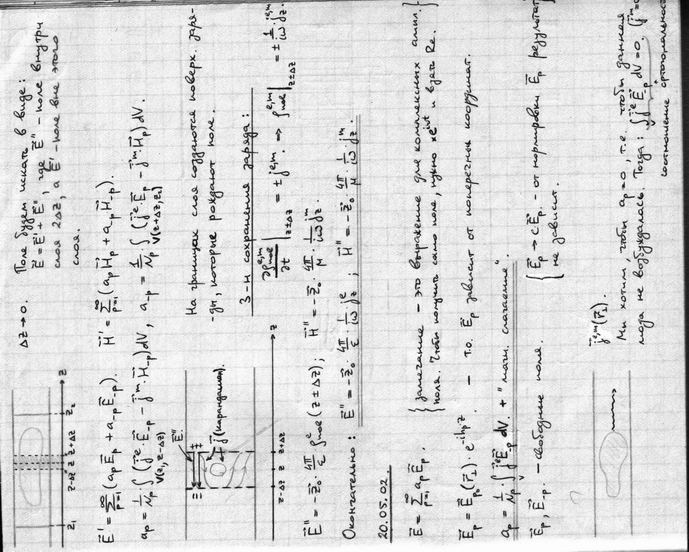 Δz→0. Поле будем искать в виде:
E⃗ = E⃗' + E⃗'', где E⃗'' - поле внутри
слоя 2Δz, а E⃗' - поле вне этого
слоя.
z₁ z-Δz z z+Δz z₂ z
E⃗' = Σ_{p=1}^∞ (a_p E⃗_p + a_{-p} E⃗_{-p}). H⃗' = Σ_{p=1}^∞ (a_p H⃗_p + a_{-p} H⃗_{-p}).
a_p = 1/N_p ∫_{V(z₁, z-Δz)} (j⃗^e E⃗_{-p} - j⃗^m H⃗_{-p}) dV, a_{-p} = 1/N_p ∫_{V(z+Δz, z₂)} (j⃗^e E⃗_p - j⃗^m H⃗_p) dV.
На границах слоя создаются поверх. заря-
-ды, которые рождают поле.
E⃗''
j⃗ (карандашом).
З-н сохранения заряда:
z-Δz z z+Δz z
∂ρ^{e,m}_{пов}/∂t |_{z±Δz} = ± j^{e,m}_z ⇒ ρ^{e,m}_{пов} |_{z±Δz} = ± 1/iω j^{e,m}_z.
E⃗'' = -z⃗₀ 4π/ε ρ^e_{пов} (z±Δz); H⃗'' = -z⃗₀ 4π/μ 1/iω j^m_z.
Окончательно: E⃗'' = -z⃗₀ 4π/ε 1/iω j^e_z ; H⃗'' = -z⃗₀ 4π/μ 1/iω j^m_z
20.05.02.
{ Замечание - это выражение для комплексных ампл.
поля. Чтобы получить само поле, нужно ×e^{iωt} и взять Re. }
E⃗ = Σ_{p=1}^∞ a_p E⃗_p.
E⃗_p = E⃗_{p₀}(r⃗_⊥) · e^{-ih_p z} - т.о. E⃗_p зависит от поперечных координат.
a_p = 1/N_p ∫_V j⃗^e E⃗_{-p} dV. + "магн. слагаемое".
E⃗_p, E⃗_{-p} - свободные поля.
{ E⃗_p → cE⃗_p - от нормировки E⃗_p результат
не зависит. }
j⃗^{e,m}(r⃗_⊥).
Мы хотим, чтобы a_p = 0, т.е. чтобы данная
мода не возбуждалась. Тогда: ∫ j⃗^e E⃗_{-p} dV = 0.
соотношение ортогональнос